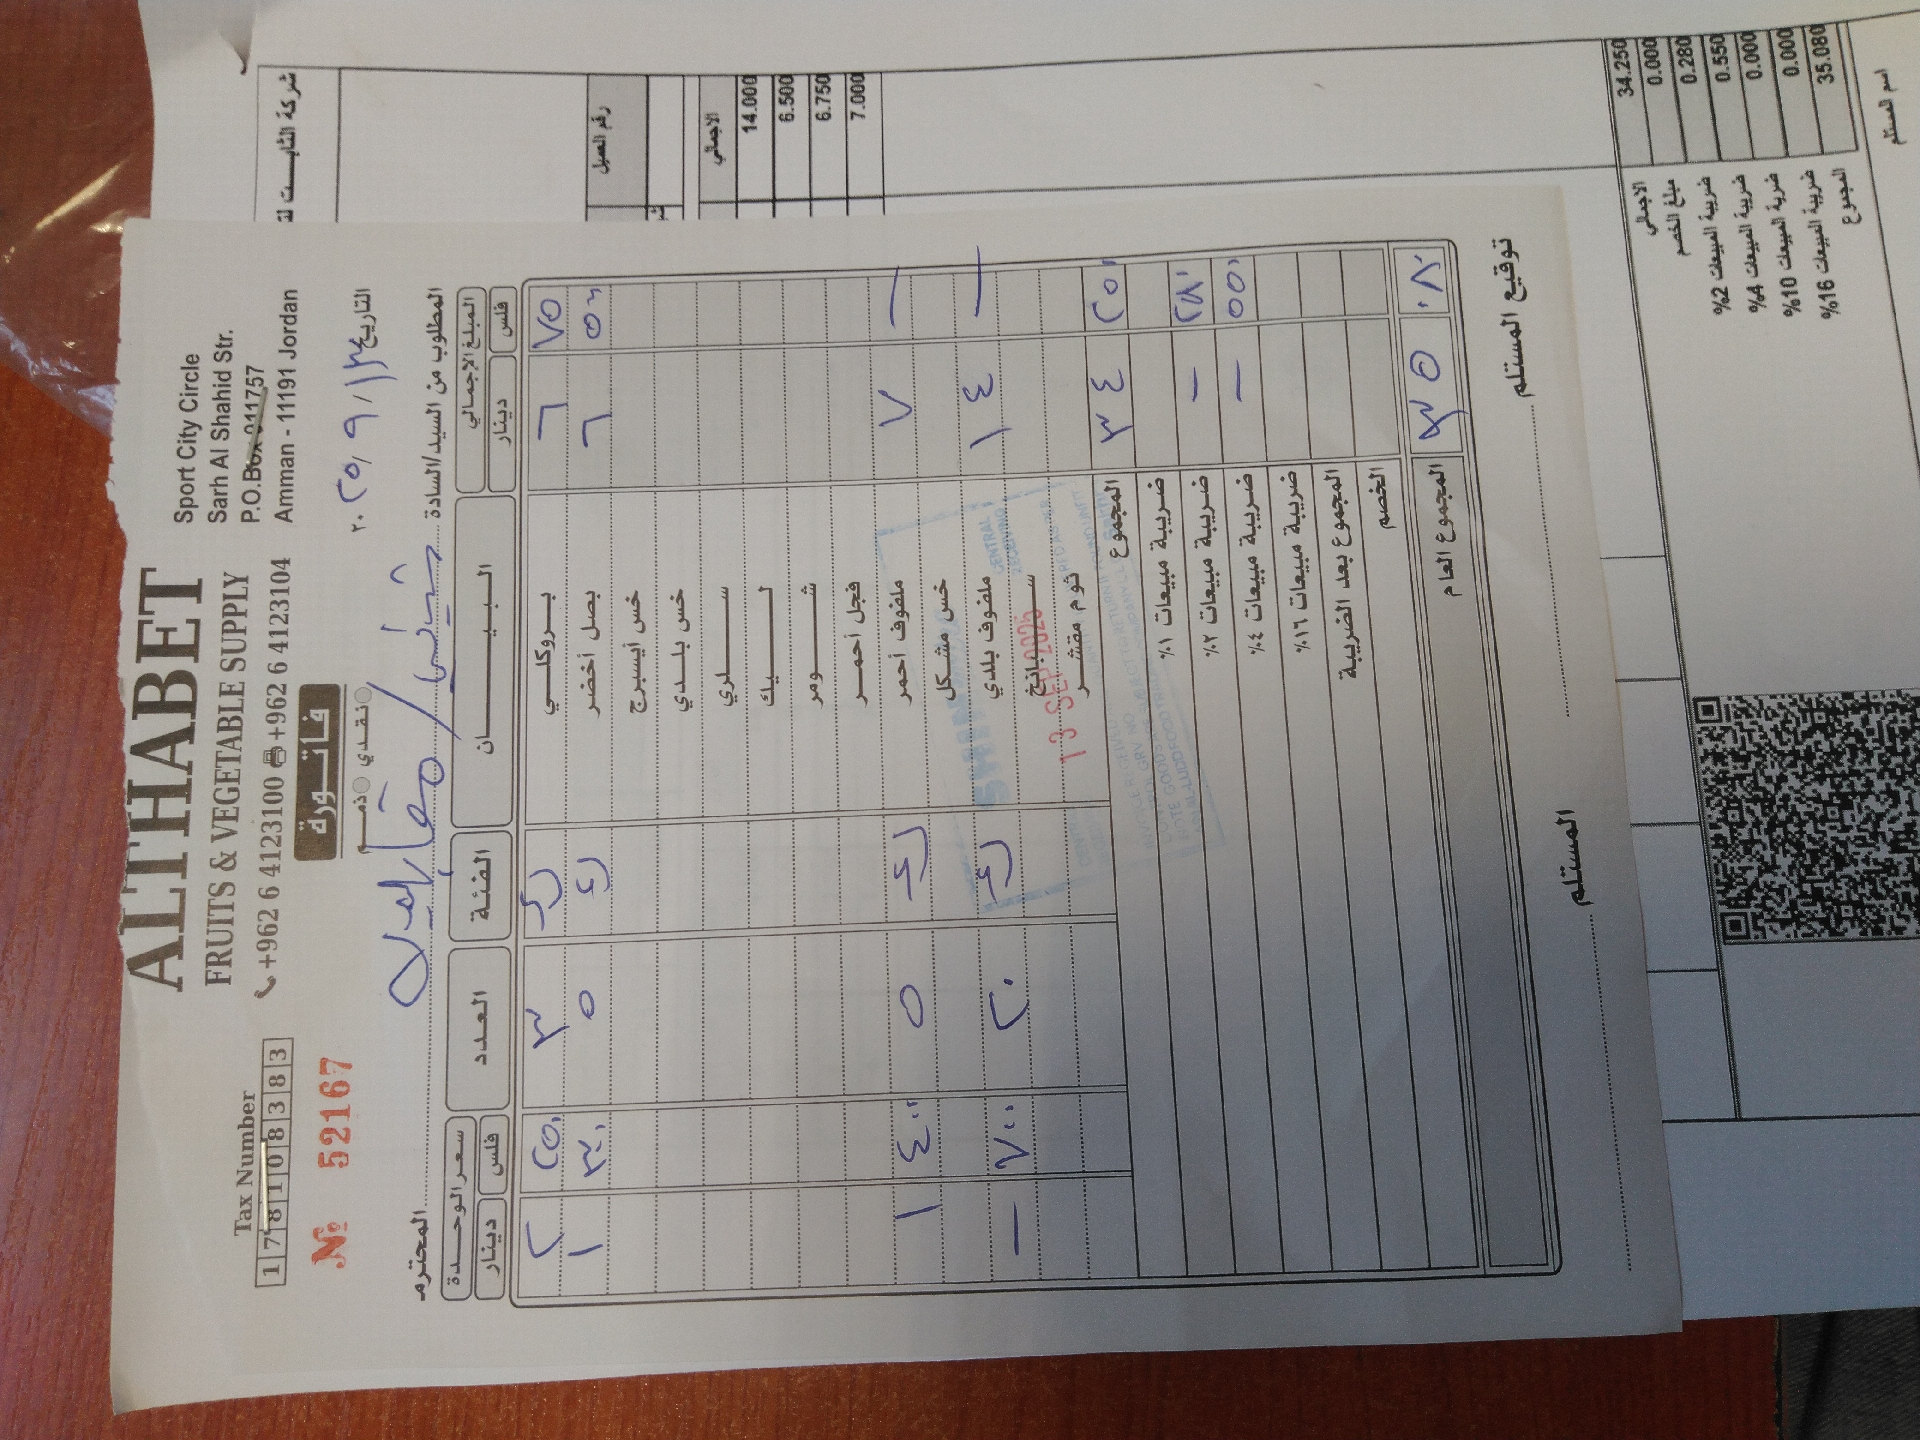 ALTHABET
FRUITS & VEGETABLE SUPPLY
+962 6 4123100 +962 6 4123104
Sport City Circle
Sarh Al Shahid Str.
P.O.Box 911757
Amman - 11191 Jordan
Tax Number
178108383
№ 52167
فاتورة
نقدي ذمم
التاريخ ١٣ / ٩ / ٢٠٢٥
المطلوب من السيد/السادة
المحترم
المبلغ الاجمالي البيـــــان الفئة العدد سعر الوحدة
فلس دينار فلس دينار
٧٥٠ ٦ بروكلي ٣ ٢٥٠ ٢
٥٠٠ ٦ بصل أخضر ٥ ٣٠٠ ١
خس أيسبرج
خس بلدي
سلري
ليك
شومر
فجل أحمر
— ٧ ملفوف أحمر ٥ ٤٠٠ ١
خس مشكل
— ١٤ ملفوف بلدي ٢٠ ٧٠٠ —
سبانخ
ثوم مقشر
٢٥٠ ٣٤ المجموع
ضريبة مبيعات ١٪
٢٨٠ — ضريبة مبيعات ٢٪
٥٥٠ — ضريبة مبيعات ٤٪
ضريبة مبيعات ١٦٪
المجموع بعد الضريبة
الخصم
٠٨٠ ٣٥ المجموع العام
CENTRAL
RECEIVING
13 SEP 2025
المستلم
توقيع المستلم
شركة الثابت
رقم العميل
الاجمالي
14.000
6.500
6.750
7.000
الاجمالي 34.250
مبلغ الخصم 0.000
ضريبة المبيعات 2% 0.280
ضريبة المبيعات 4% 0.550
ضريبة المبيعات 10% 0.000
ضريبة المبيعات 16% 0.000
المجموع 35.080
اسم المستلم